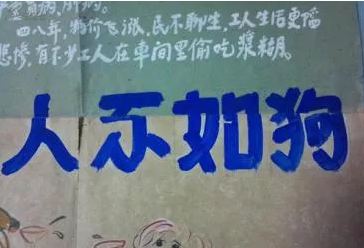 四八年，物价飞涨，民不聊生，工人生活更陷
悲惨，有不少工人在车间里偷吃浆糊。
人不如狗